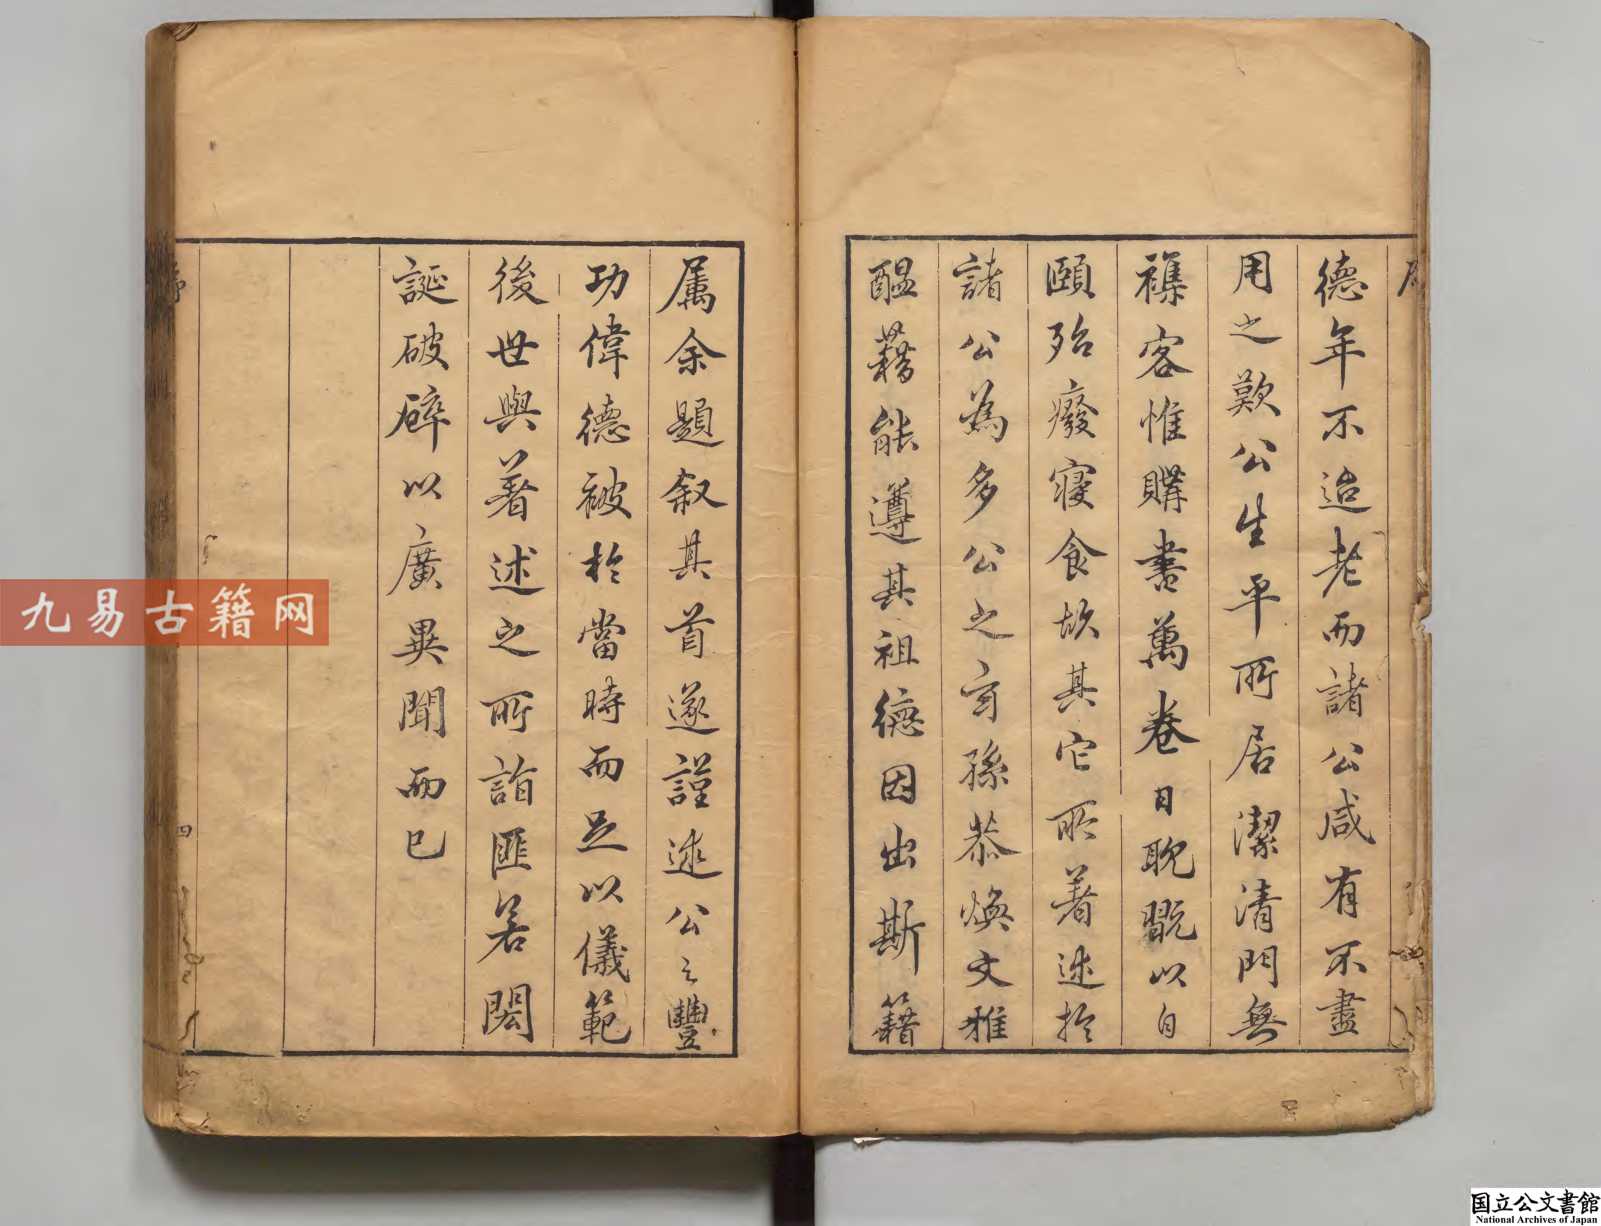 德年不迨老而諸公咸有不盡
用之歎公生平所居潔清門無
襍客惟購書萬卷日耽翫以自
頤殆癈寢食故其它所著述於
諸公為多公之育孫恭煥文雅
醞藉能遵其祖德因出斯籍
属余題叙其首遂謹述公之豐
功偉德被於當時而足以儀範
後世與著述之所詣匪若閎
誕破碎以廣異聞而已
序
四
九易古籍网
国立公文書館
National Archives of Japan